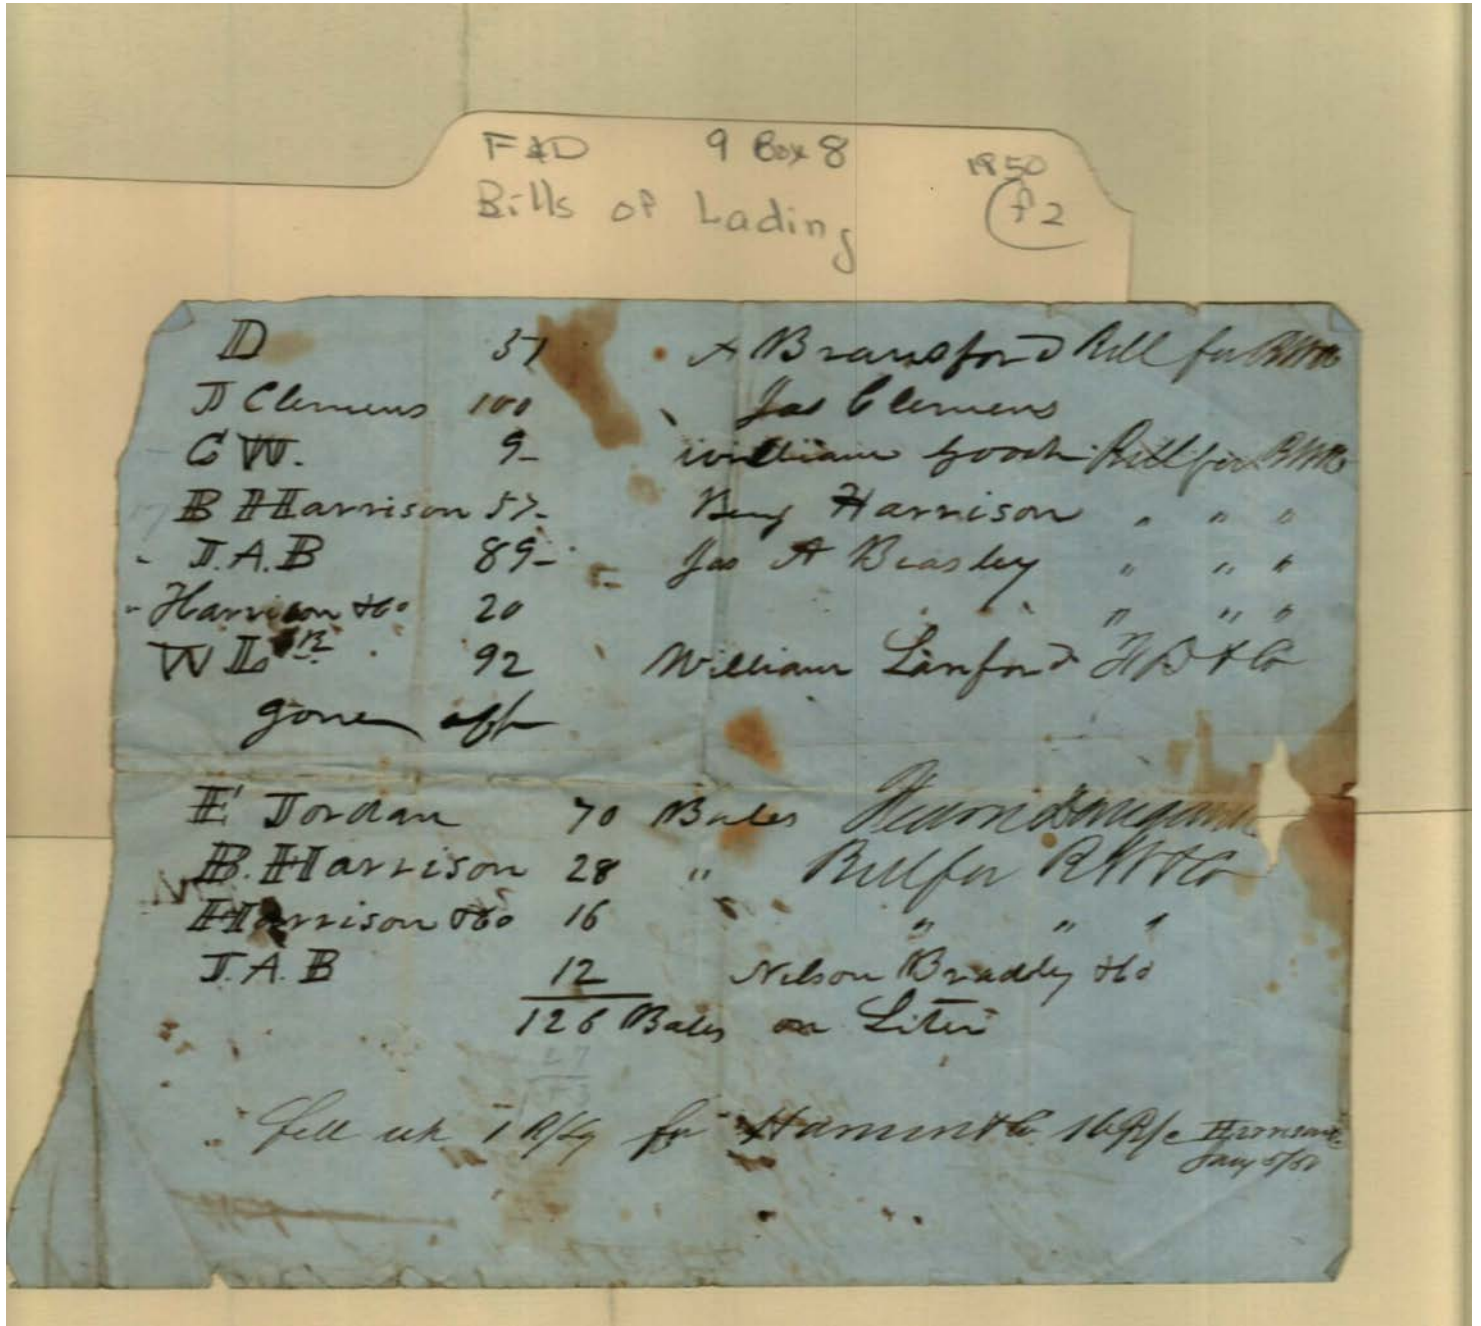 F&D 9 Box 8 1850
Bills of Lading f2
D 57 A Bransford Bill for RW&Co
J Clemens 100 Jas Clemens
C W. 9- William Gooch Bill for RW&Co
B Harrison 57- Benj Harrison " " "
J.A.B 89- Jas A Beasley " " "
Harrison &Co 20 " " "
W L 92 William Lanford F D & Co
gone off
E Jordan 70 Bales Fearn Donegan
B. Harrison 28 " Bill for RW&Co
Harrison &Co 16 " " "
J.A.B 12 Nelson Braddly &Co
126 Bales on Liter
27
fill up 1 for &Co 16
Jany 5/50